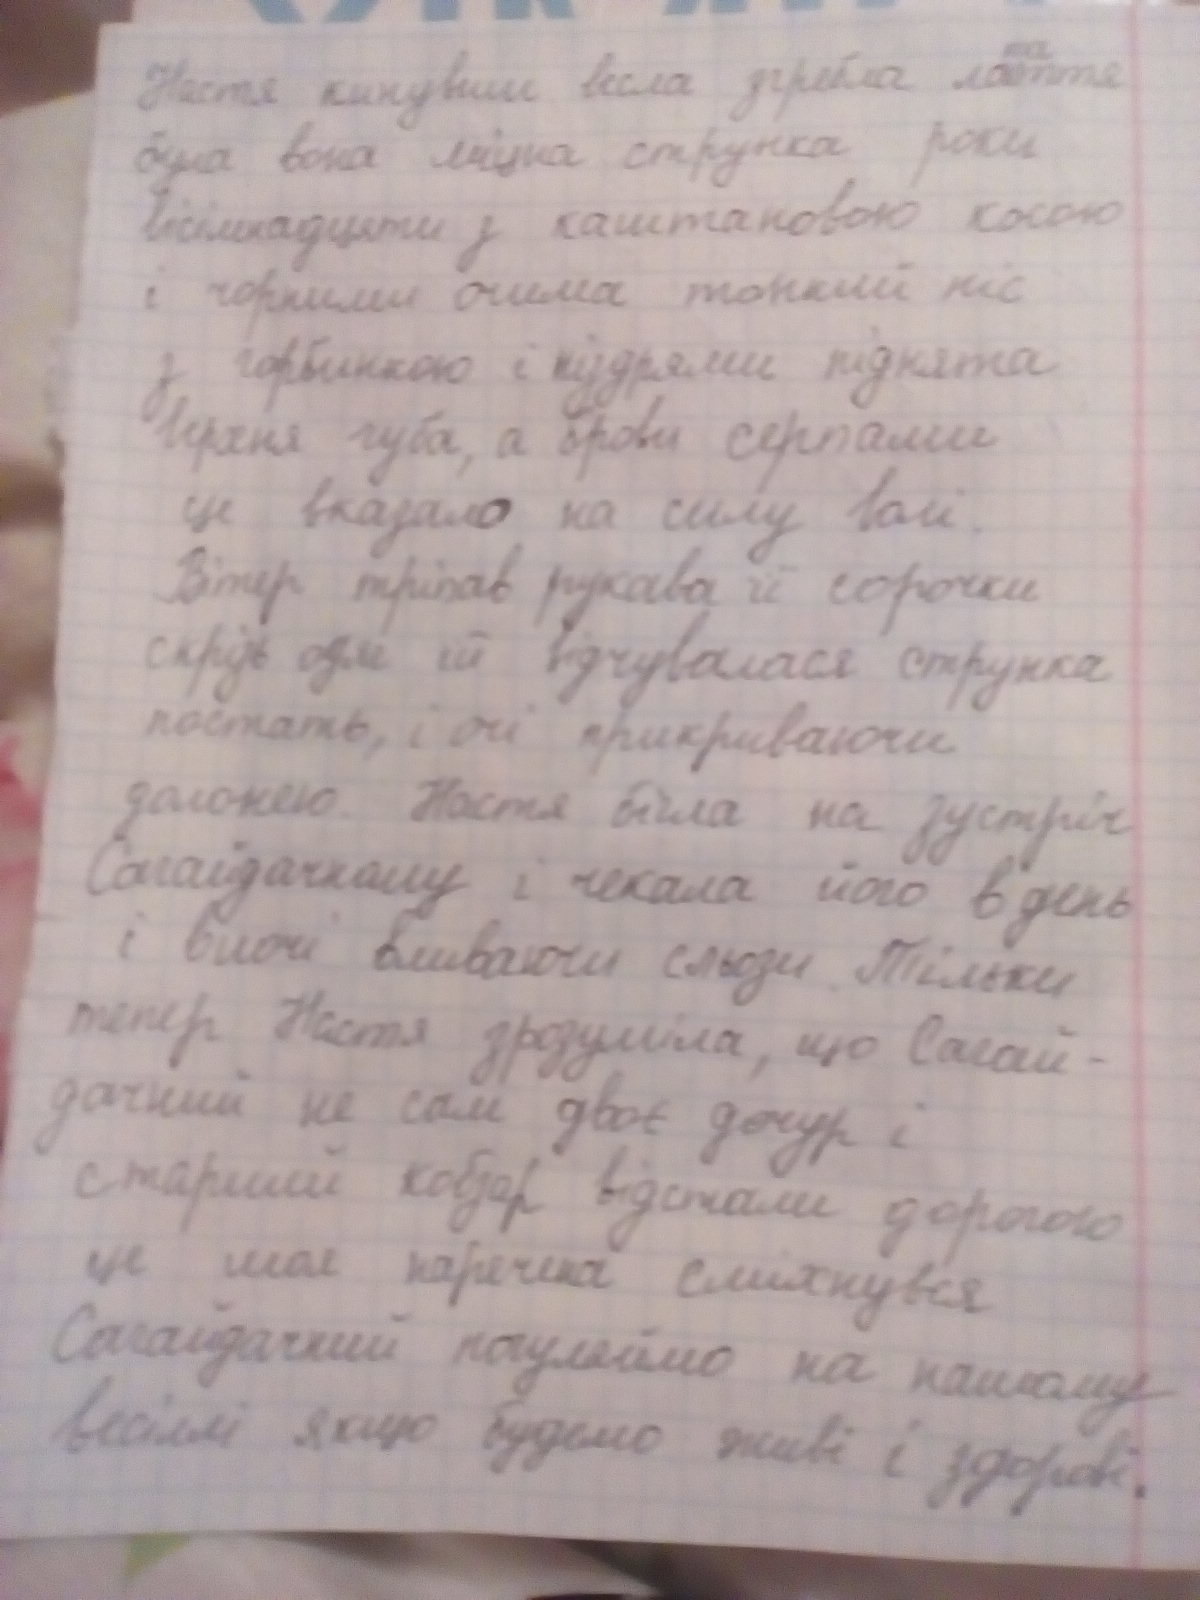 Настя кинувши весла згребла лаття
та
була вона міцна струнка роки
вісімнадцяти з каштановою косою
і чорними очима тонкий ніс
з горбинкою і ніздрями піднята
верхня губа, а брови серпами
це вказало на силу волі.
Вітер тріпав рукава її сорочки
скрізь одяг її відчувалася струнка
постать, і очі прикриваючи
долонею. Настя бігла на зустріч
Сагайдачному і чекала його в день
і вночі вмиваючи сльози. Тільки
тепер Настя зрозуміла, що Сагай-
дачний не сам двоє дочур і
старший кобзар відстали дорогою
це моя наречена сміхнувся
Сагайдачний погуляймо на нашому
весіллі якщо будемо живі і здорові.